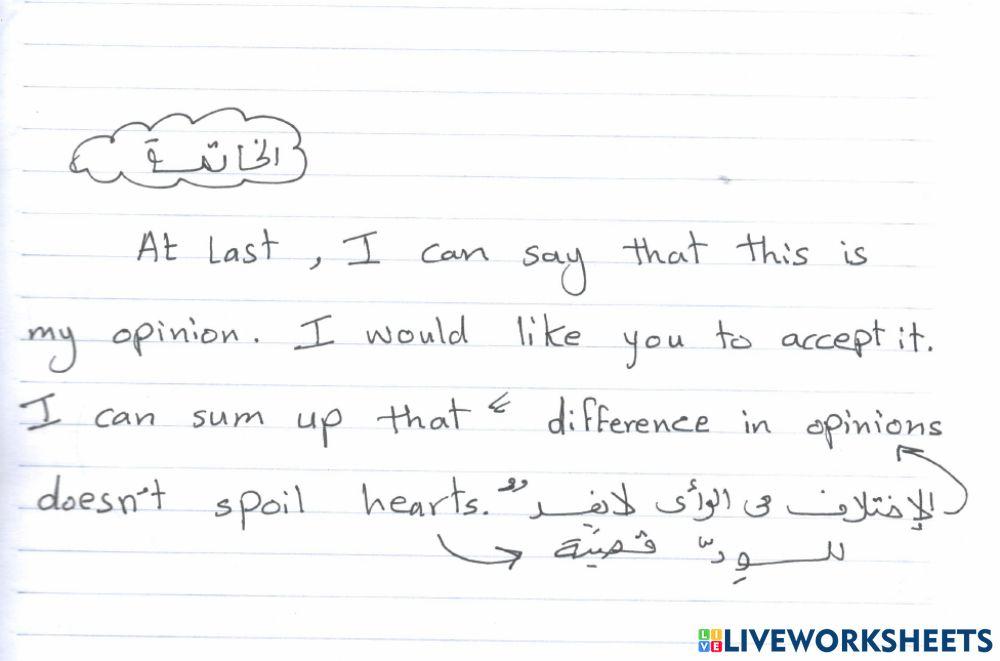 الخاتمة
At Last, I can say that this is
my opinion. I would like you to accept it.
I can sum up that “ difference in opinions
doesn't spoil hearts.” الإختلاف فى الرأى لا
للودّ قضيّة
LIVEWORKSHEETS